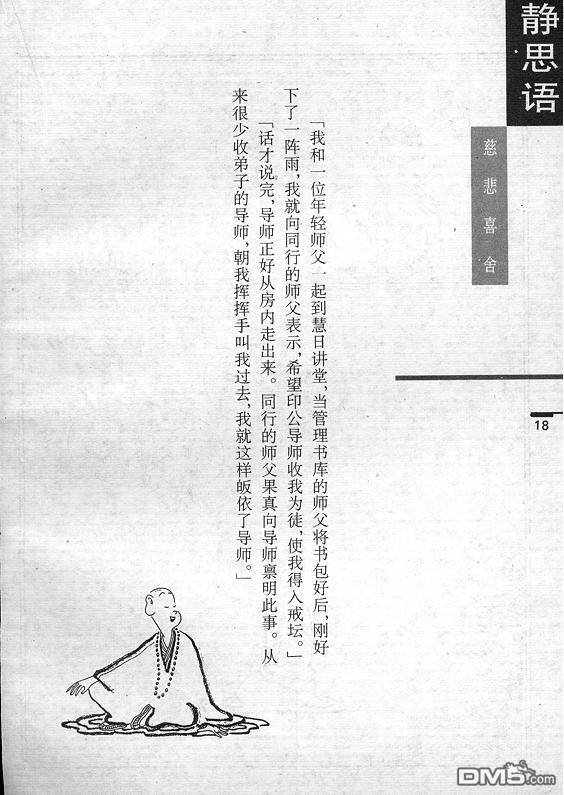 静思语
慈悲喜舍
18
「我和一位年轻师父一起到慧日讲堂，当管理书库的师父将书包好后，刚好
下了一阵雨，我就向同行的师父表示，希望印公导师收我为徒，使我得入戒坛。」
「话才说完，导师正好从房内走出来。同行的师父果真向导师禀明此事。从
来很少收弟子的导师，朝我挥挥手叫我过去，我就这样皈依了导师。」
DM5.com